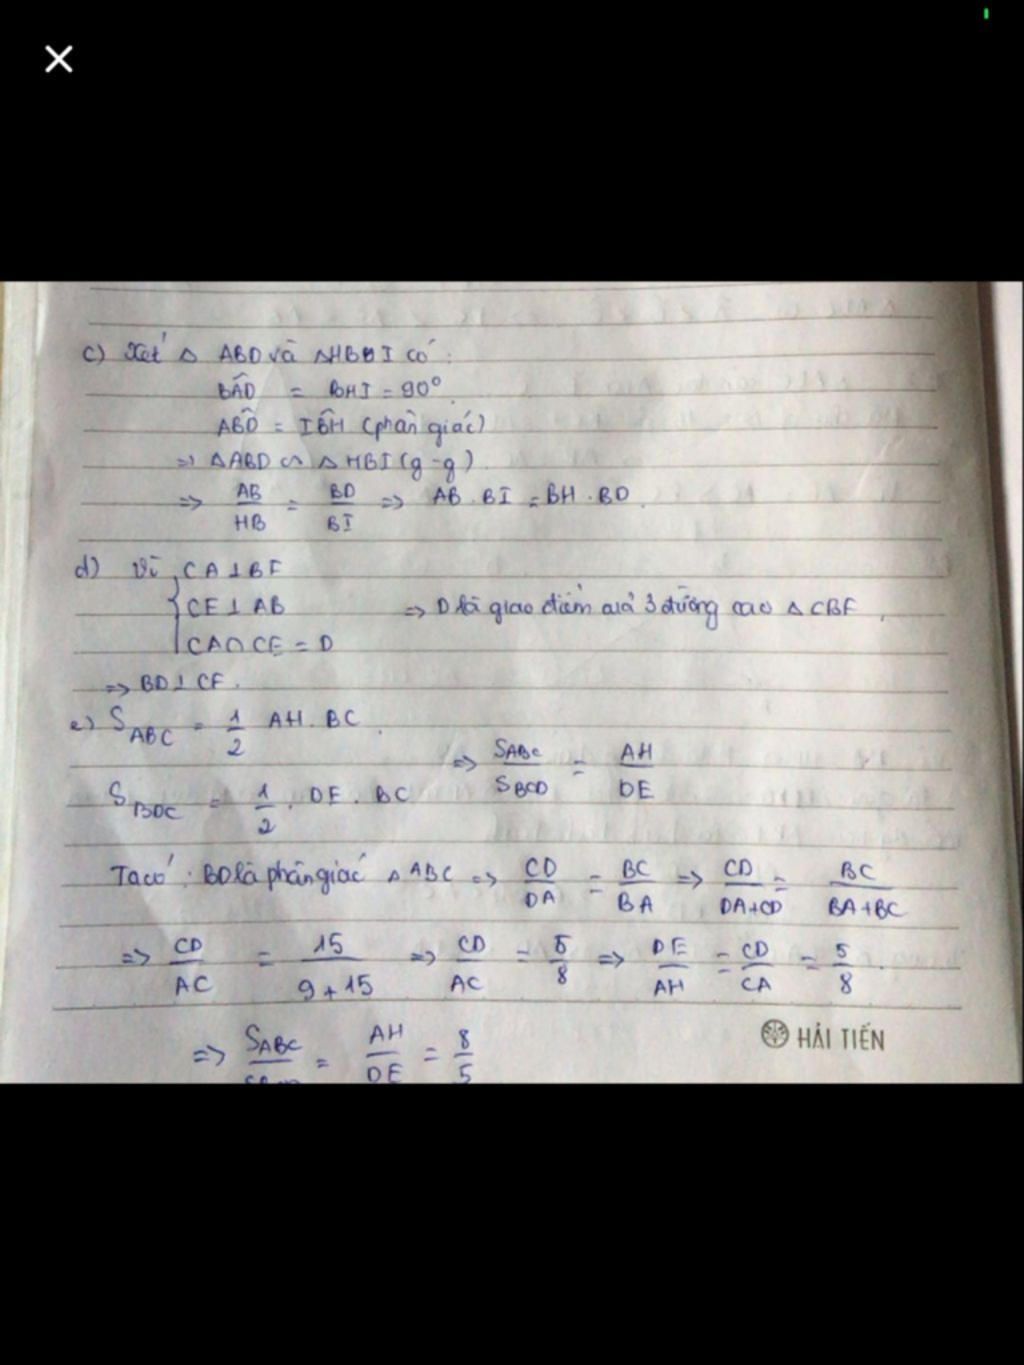 c) Xét △ ABD và △HBI có:
BÂD = BHI = 90°
AB̂D = IB̂H (phân giác)
=> △ABD ∽ △HBI (g-g)
=> AB/HB = BD/BI => AB.BI = BH.BD
d) Vì { CA⊥BF
CE⊥AB => D là giao điểm của 3 đường cao △CBF
CA∩CE = D
=> BD⊥CF.
e) S_ABC = 1/2 AH.BC
=> S_ABC/S_BCD = AH/DE
S_BDC = 1/2.DE.BC
Ta có: BD là phân giác △ABC => CD/DA = BC/BA => CD/DA+CD = BC/BA+BC
=> CD/AC = 15/9+15 => CD/AC = 5/8 => DE/AH = CD/CA = 5/8.
HẢI TIẾN
=> S_ABC = AH/DE = 8/5